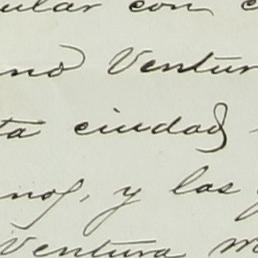 ular con
no Ventur
ta ciudad
nos, y las
Ventura M